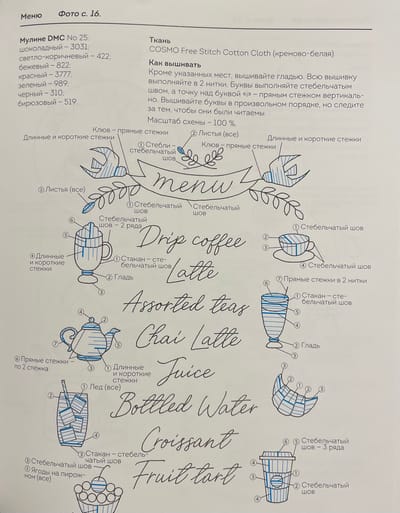 Меню Фото с. 16.
Мулине DMC No 25:
шоколадный – 3031,
светло-коричневый – 422,
бежевый – 822,
красный – 3777,
зеленый – 989,
черный – 310,
бирюзовый – 519.
Ткань
COSMO Free Stitch Cotton Cloth (кремово-белая)
Как вышивать
Кроме указанных мест, вышивайте гладью. Всю вышивку
выполняйте в 2 нити. Буквы выполняйте стебельчатым
швом, а точку над буквой «i» – прямым стежком вертикаль-
но. Вышивайте буквы в произвольном порядке, но следите
за тем, чтобы они были читаемы.
Масштаб схемы – 100 %.
Клюв – прямые стежки
② Листья (все)
Длинные и короткие стежки
① Стебли –
стебельчатый
шов
Клюв – прямые стежки
Длинные и короткие стежки
menu
② Листья (все)
① Стебельчатый
шов
Стебельчатый
шов
Стебельчатый
шов – 2 ряда
Drip coffee
① Стебельчатый шов
④ Стебельчатый
шов
① Стакан – сте-
бельчатый шов
② Гладь
Длинные
и короткие
стежки
Latte
⑦ Прямые стежки в 2 нити
① Стакан – сте-
бельчатый
шов
② Гладь
Assorted teas
Chai Latte
⑧ Прямые стежки –
по 2 стежка
① Длинные
и короткие
стежки
Juice
① Лед (все)
Bottled Water
③ Стакан – стебель-
чатый шов
② Стебельчатый шов
① Ягоды на пирож-
ном (все)
Croissant
Fruit tart
⑤ Стебельчатый
шов – 3 ряда
② Стебельчатый
шов